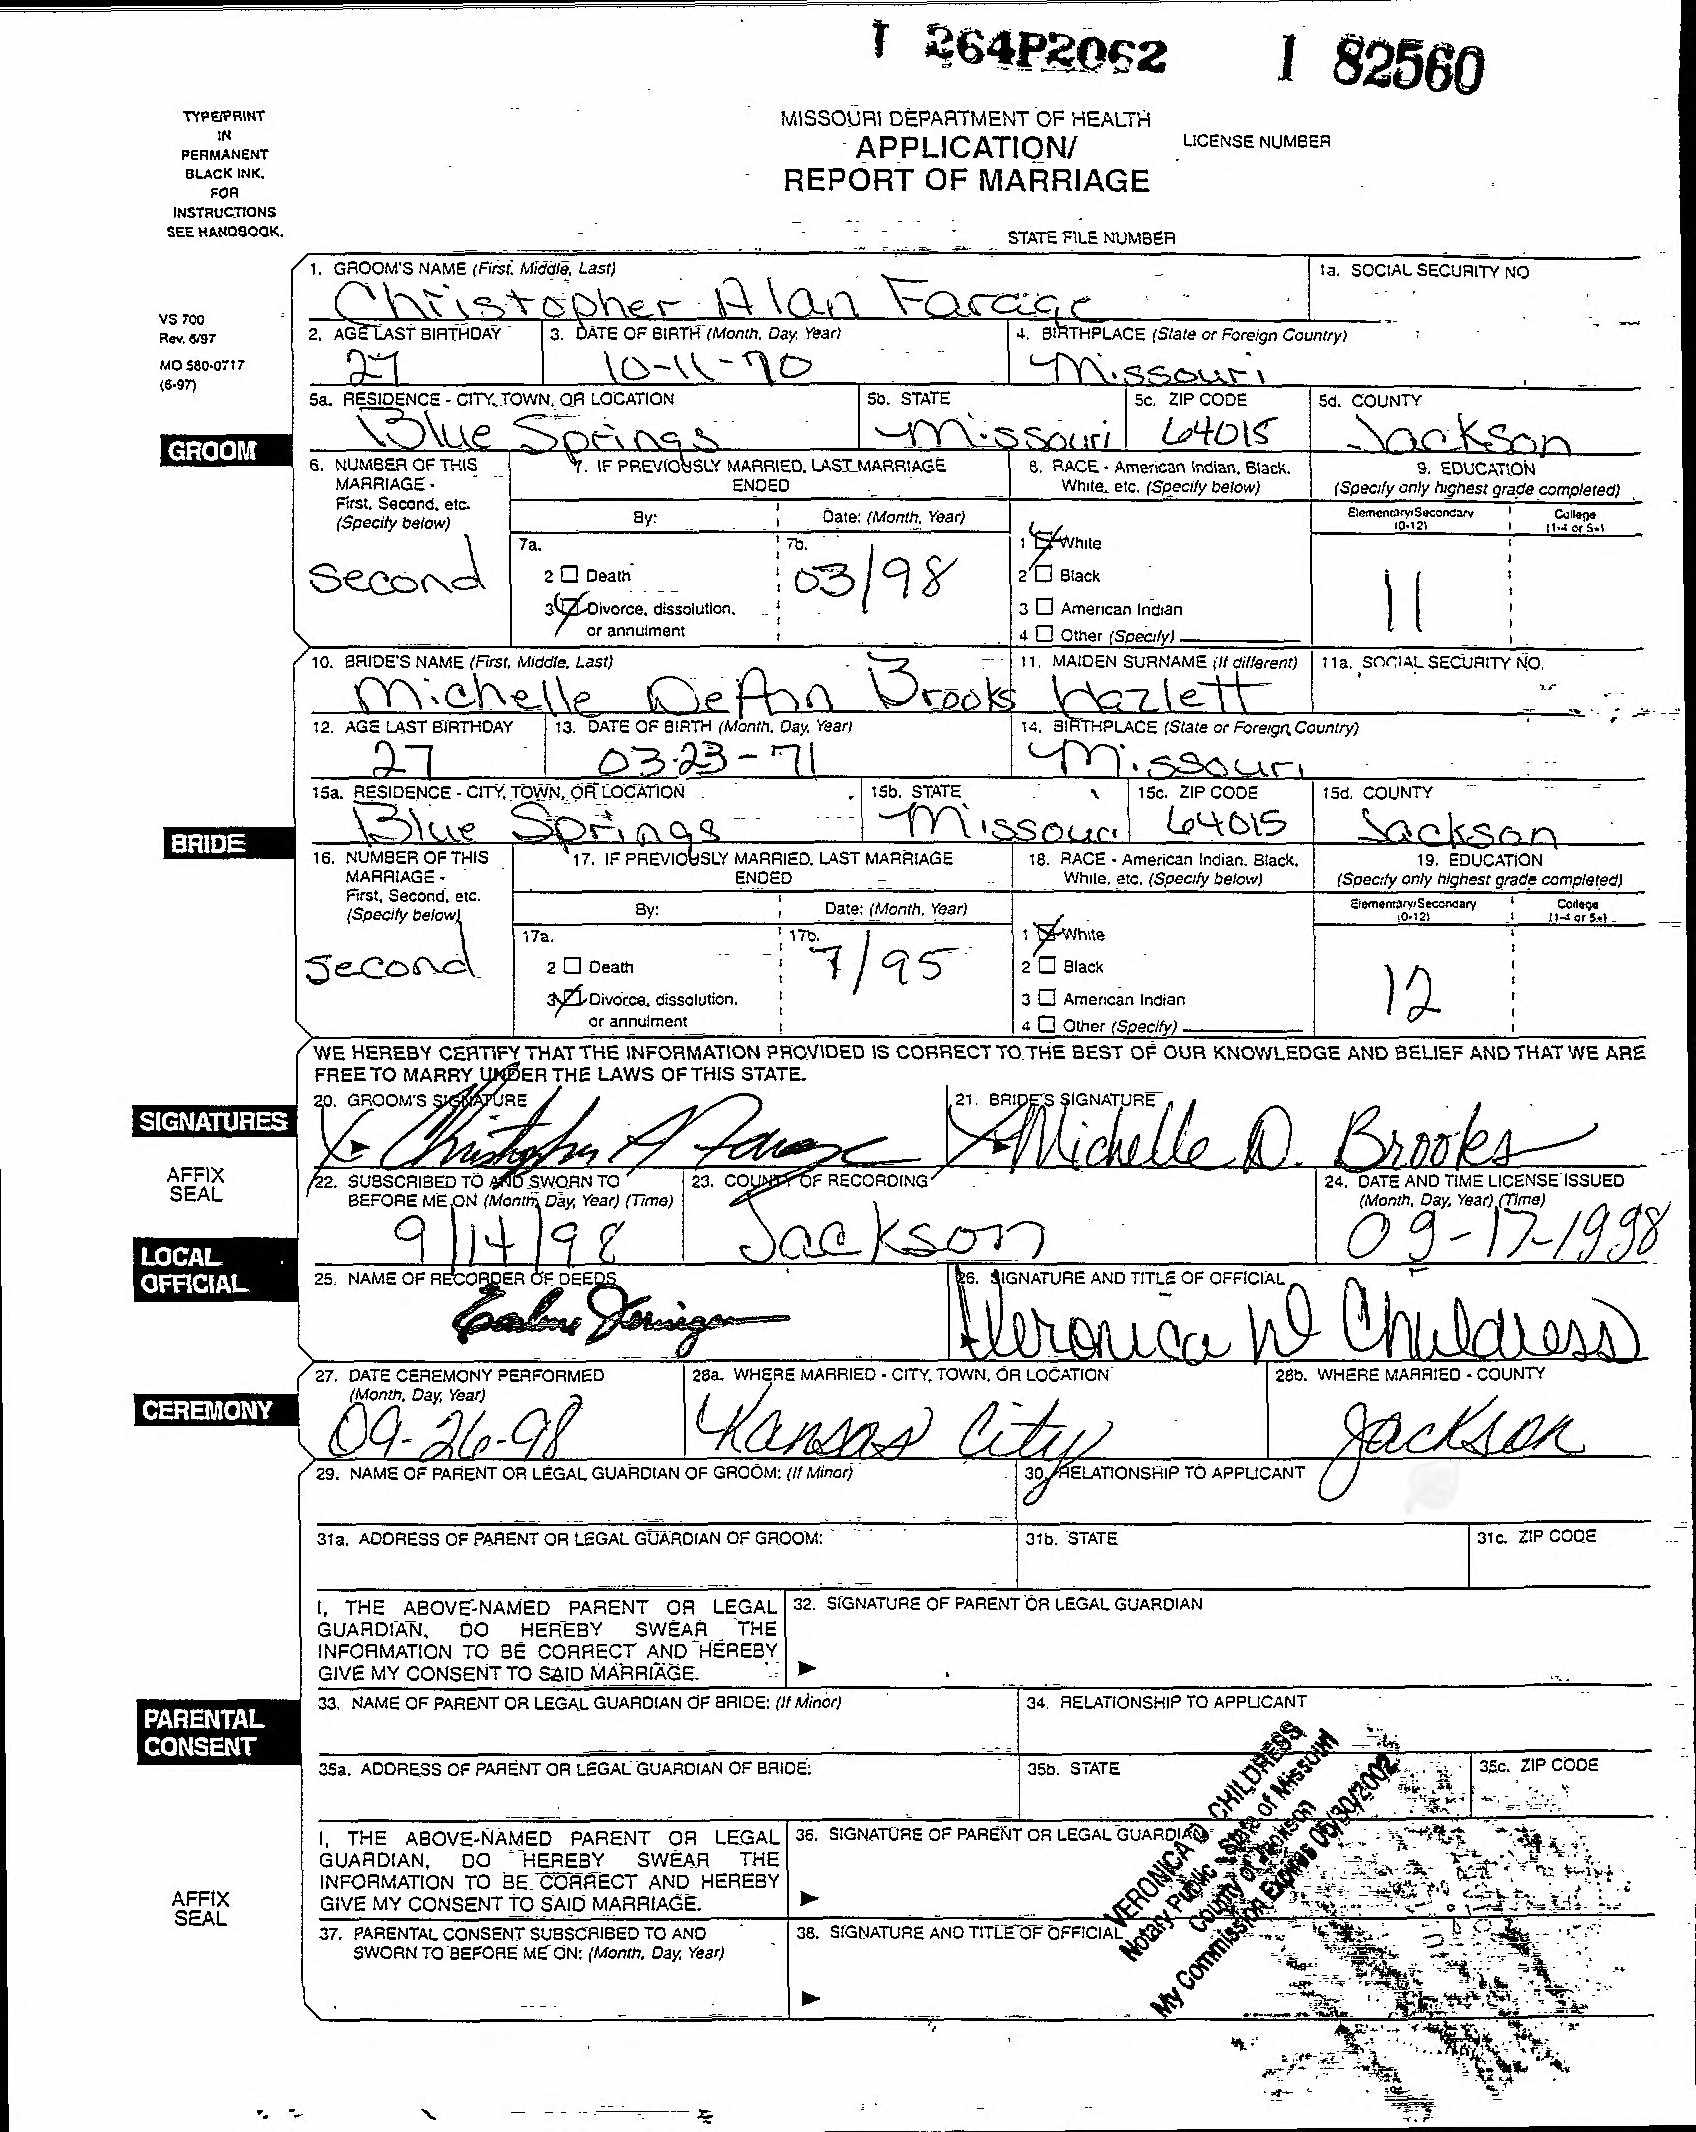 I 264P2062 I 82560
TYPE/PRINT
IN
PERMANENT
BLACK INK.
FOR
INSTRUCTIONS
SEE HANDBOOK.
MISSOURI DEPARTMENT OF HEALTH
APPLICATION/
REPORT OF MARRIAGE
LICENSE NUMBER
STATE FILE NUMBER
VS 700
Rev. 6/97
MO 580-0717
(6-97)
GROOM
1. GROOM'S NAME (First, Middle, Last)
Christopher Alan Farage
1a. SOCIAL SECURITY NO
2. AGE LAST BIRTHDAY
27
3. DATE OF BIRTH (Month, Day, Year)
10-11-70
4. BIRTHPLACE (State or Foreign Country)
Missouri
5a. RESIDENCE - CITY, TOWN, OR LOCATION
Blue Springs
5b. STATE
Missouri
5c. ZIP CODE
64015
5d. COUNTY
Jackson
6. NUMBER OF THIS
MARRIAGE -
First, Second, etc.
(Specify below)
second
7. IF PREVIOUSLY MARRIED, LAST MARRIAGE
ENDED
By:
Date: (Month, Year)
7a.
2 Death
3 Divorce, dissolution,
or annulment
7b.
03/98
8. RACE - American Indian, Black,
White, etc. (Specify below)
1 White
2 Black
3 American Indian
4 Other (Specify)
9. EDUCATION
(Specify only highest grade completed)
Elementary/Secondary
(0-12)
College
(1-4 or 5+)
11
BRIDE
10. BRIDE'S NAME (First, Middle, Last)
Michelle DeAnn Brooks
11. MAIDEN SURNAME (If different)
Hazlett
11a. SOCIAL SECURITY NO.
12. AGE LAST BIRTHDAY
27
13. DATE OF BIRTH (Month, Day, Year)
03-23-71
14. BIRTHPLACE (State or Foreign Country)
Missouri
15a. RESIDENCE - CITY, TOWN, OR LOCATION
Blue Springs
15b. STATE
Missouri
15c. ZIP CODE
64015
15d. COUNTY
Jackson
16. NUMBER OF THIS
MARRIAGE -
First, Second, etc.
(Specify below)
second
17. IF PREVIOUSLY MARRIED, LAST MARRIAGE
ENDED
By:
Date: (Month, Year)
17a.
2 Death
3 Divorce, dissolution,
or annulment
17b.
7/95
18. RACE - American Indian, Black,
White, etc. (Specify below)
1 White
2 Black
3 American Indian
4 Other (Specify)
19. EDUCATION
(Specify only highest grade completed)
Elementary/Secondary
(0-12)
College
(1-4 or 5+)
12
WE HEREBY CERTIFY THAT THE INFORMATION PROVIDED IS CORRECT TO THE BEST OF OUR KNOWLEDGE AND BELIEF AND THAT WE ARE
FREE TO MARRY UNDER THE LAWS OF THIS STATE.
SIGNATURES
20. GROOM'S SIGNATURE
X Christopher A Farage
21. BRIDE'S SIGNATURE
X Michelle D. Brooks
AFFIX
SEAL
22. SUBSCRIBED TO AND SWORN TO
BEFORE ME ON (Month, Day, Year) (Time)
9/14/98
23. COUNTY OF RECORDING
Jackson
24. DATE AND TIME LICENSE ISSUED
(Month, Day, Year) (Time)
09-17-1998
LOCAL
OFFICIAL
25. NAME OF RECORDER OF DEEDS
26. SIGNATURE AND TITLE OF OFFICIAL
Veronica D Childress
CEREMONY
27. DATE CEREMONY PERFORMED
(Month, Day, Year)
09-26-98
28a. WHERE MARRIED - CITY, TOWN, OR LOCATION
Kansas City
28b. WHERE MARRIED - COUNTY
Jackson
29. NAME OF PARENT OR LEGAL GUARDIAN OF GROOM: (If Minor)
30. RELATIONSHIP TO APPLICANT
31a. ADDRESS OF PARENT OR LEGAL GUARDIAN OF GROOM:
31b. STATE
31c. ZIP CODE
I, THE ABOVE-NAMED PARENT OR LEGAL
GUARDIAN, DO HEREBY SWEAR THE
INFORMATION TO BE CORRECT AND HEREBY
GIVE MY CONSENT TO SAID MARRIAGE.
32. SIGNATURE OF PARENT OR LEGAL GUARDIAN
PARENTAL
CONSENT
33. NAME OF PARENT OR LEGAL GUARDIAN OF BRIDE: (If Minor)
34. RELATIONSHIP TO APPLICANT
35a. ADDRESS OF PARENT OR LEGAL GUARDIAN OF BRIDE:
35b. STATE
35c. ZIP CODE
I, THE ABOVE-NAMED PARENT OR LEGAL
GUARDIAN, DO HEREBY SWEAR THE
INFORMATION TO BE CORRECT AND HEREBY
GIVE MY CONSENT TO SAID MARRIAGE.
36. SIGNATURE OF PARENT OR LEGAL GUARDIAN
AFFIX
SEAL
37. PARENTAL CONSENT SUBSCRIBED TO AND
SWORN TO BEFORE ME ON: (Month, Day, Year)
38. SIGNATURE AND TITLE OF OFFICIAL
VERONICA D CHILDRESS
Notary Public State of Missouri
County of Jackson
My Commission Expires 05/30/2002